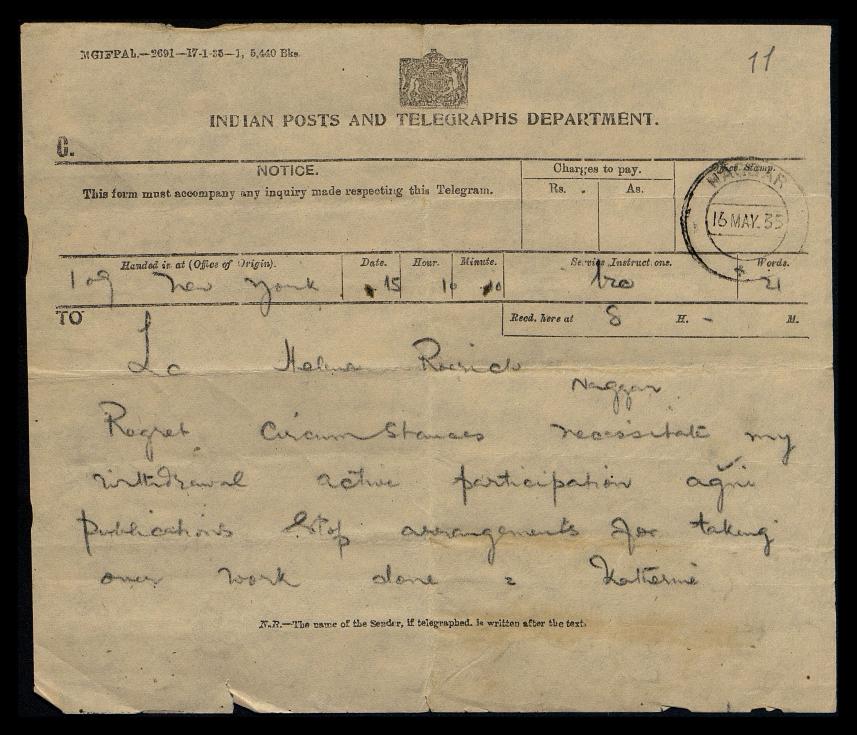 MGIFPAL.—2691—17-1-35—1, 5,440 Bks.
11
INDIAN POSTS AND TELEGRAPHS DEPARTMENT.
C.
NOTICE.
This form must accompany any inquiry made respecting this Telegram.
Charges to pay.
Rs. As.
Office Stamp.
NAGGAR
16 MAY. 35
Handed in at (Office of Origin). Date. Hour. Minute. Service Instructions. Words.
New York 15 10 10 21
TO
Recd. here at 8 H. - M.
Lc Helena Roerich
Naggar
Regret circumstances necessitate my
withdrawal active participation agni
publications Stop arrangements for taking
over work done = Katherine
N.B.—The name of the Sender, if telegraphed, is written after the text.